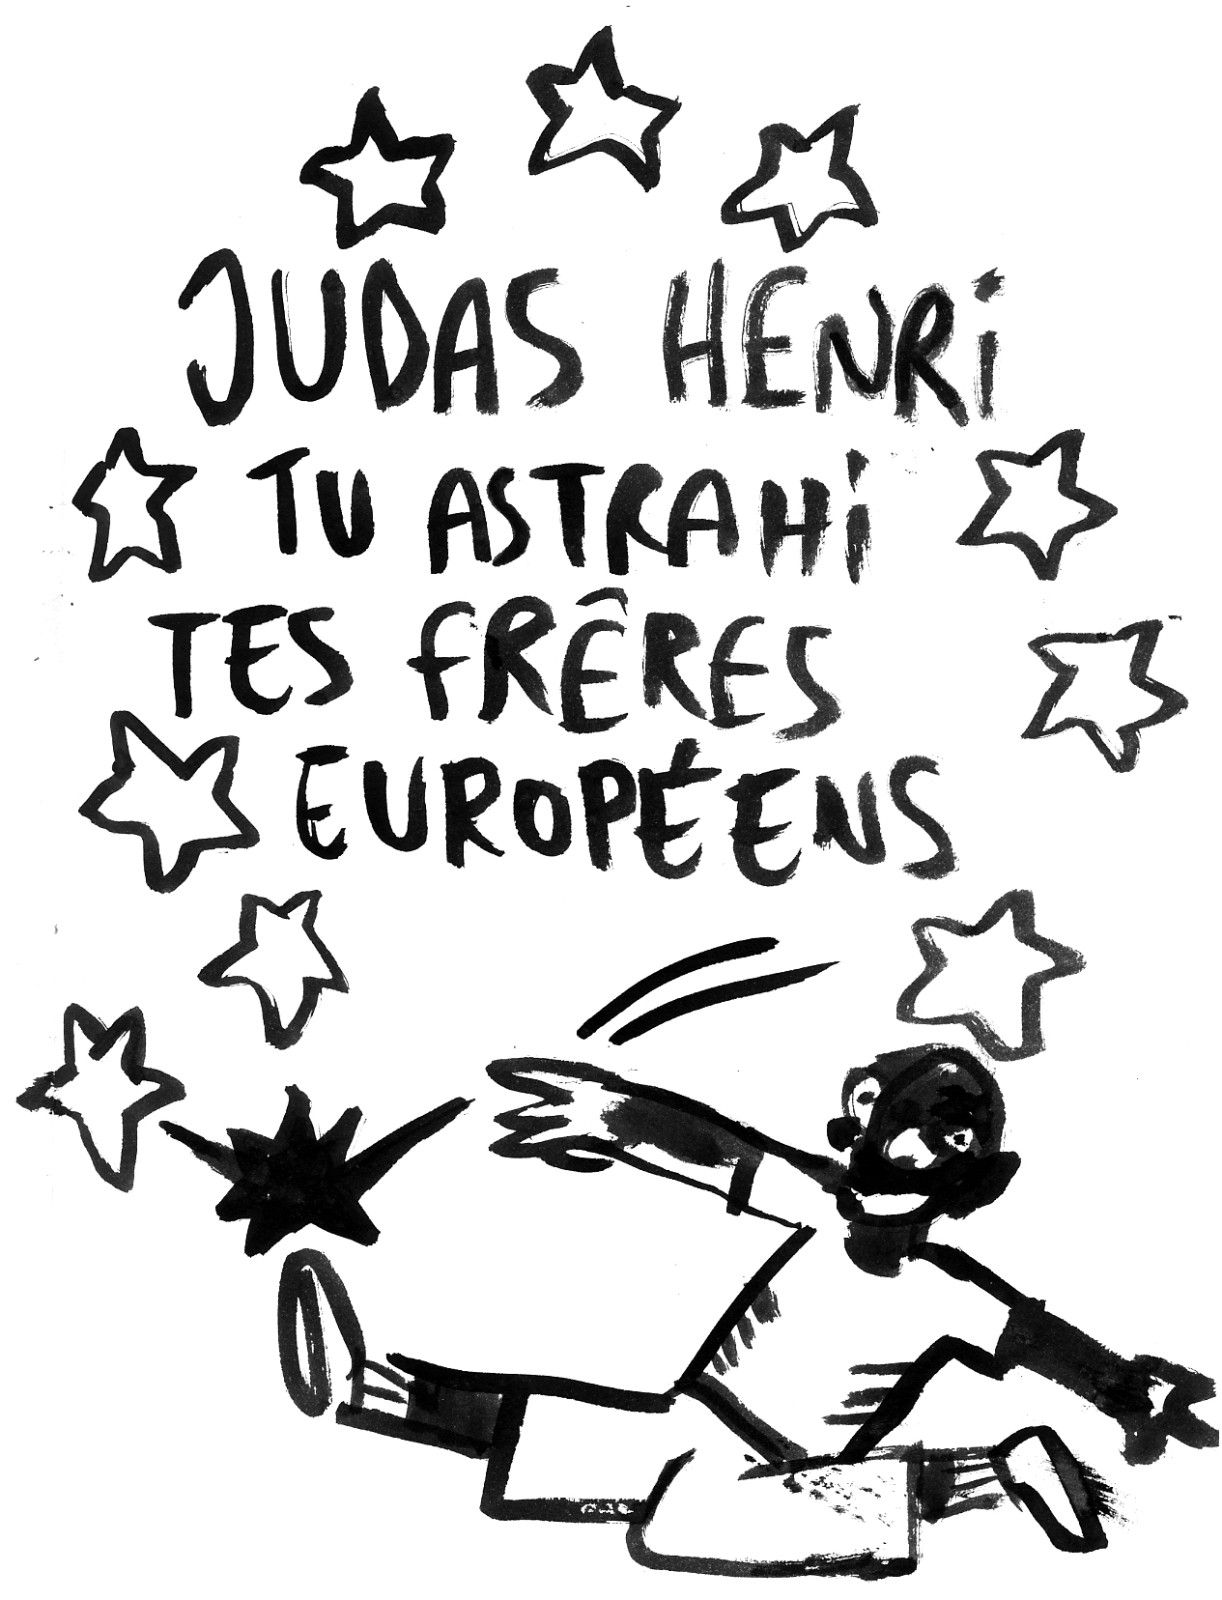 JUDAS HENRi
TU AS TRAHi
TES FRÊRES
EUROPÉENS